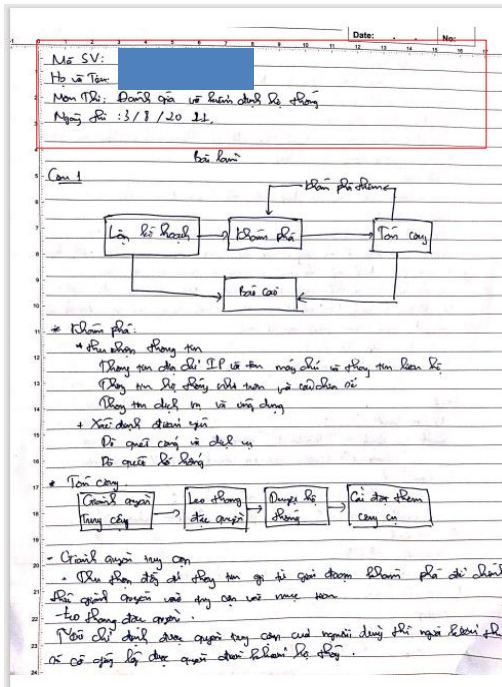 Date: . . No:
Mã SV:
Họ và Tên:
Môn Thi: Đánh giá và kiểm định hệ thống
Ngày thi : 3/8/20 21.
Bài làm
Câu 1
khám phá thêm
Lập kế hoạch
Khám phá
Tấn công
Báo cáo
* Khám phá:
+ thu thập thông tin
Thông tin địa chỉ IP và tên máy chủ và thông tin liên hệ
Thông tin hệ thống như tên và
Thông tin dịch vụ và ứng dụng
+ Xác định điểm yếu
Dò quét cổng và dịch vụ
Dò quét lỗ hổng
* Tấn công.
Giành quyền truy cập
Leo thang đặc quyền
Duyệt hệ thống
Cài đặt thêm công cụ
- Giành quyền truy cập
- Thu thập đầy đủ thông tin từ giai đoạn khám phá để
thử giành quyền vào truy cập vào mục tiêu
- Leo thang đặc quyền.
Nếu chỉ định được quyền truy cập của người dùng thì người kiểm
sẽ cố gắng lấy được quyền hệ thống.